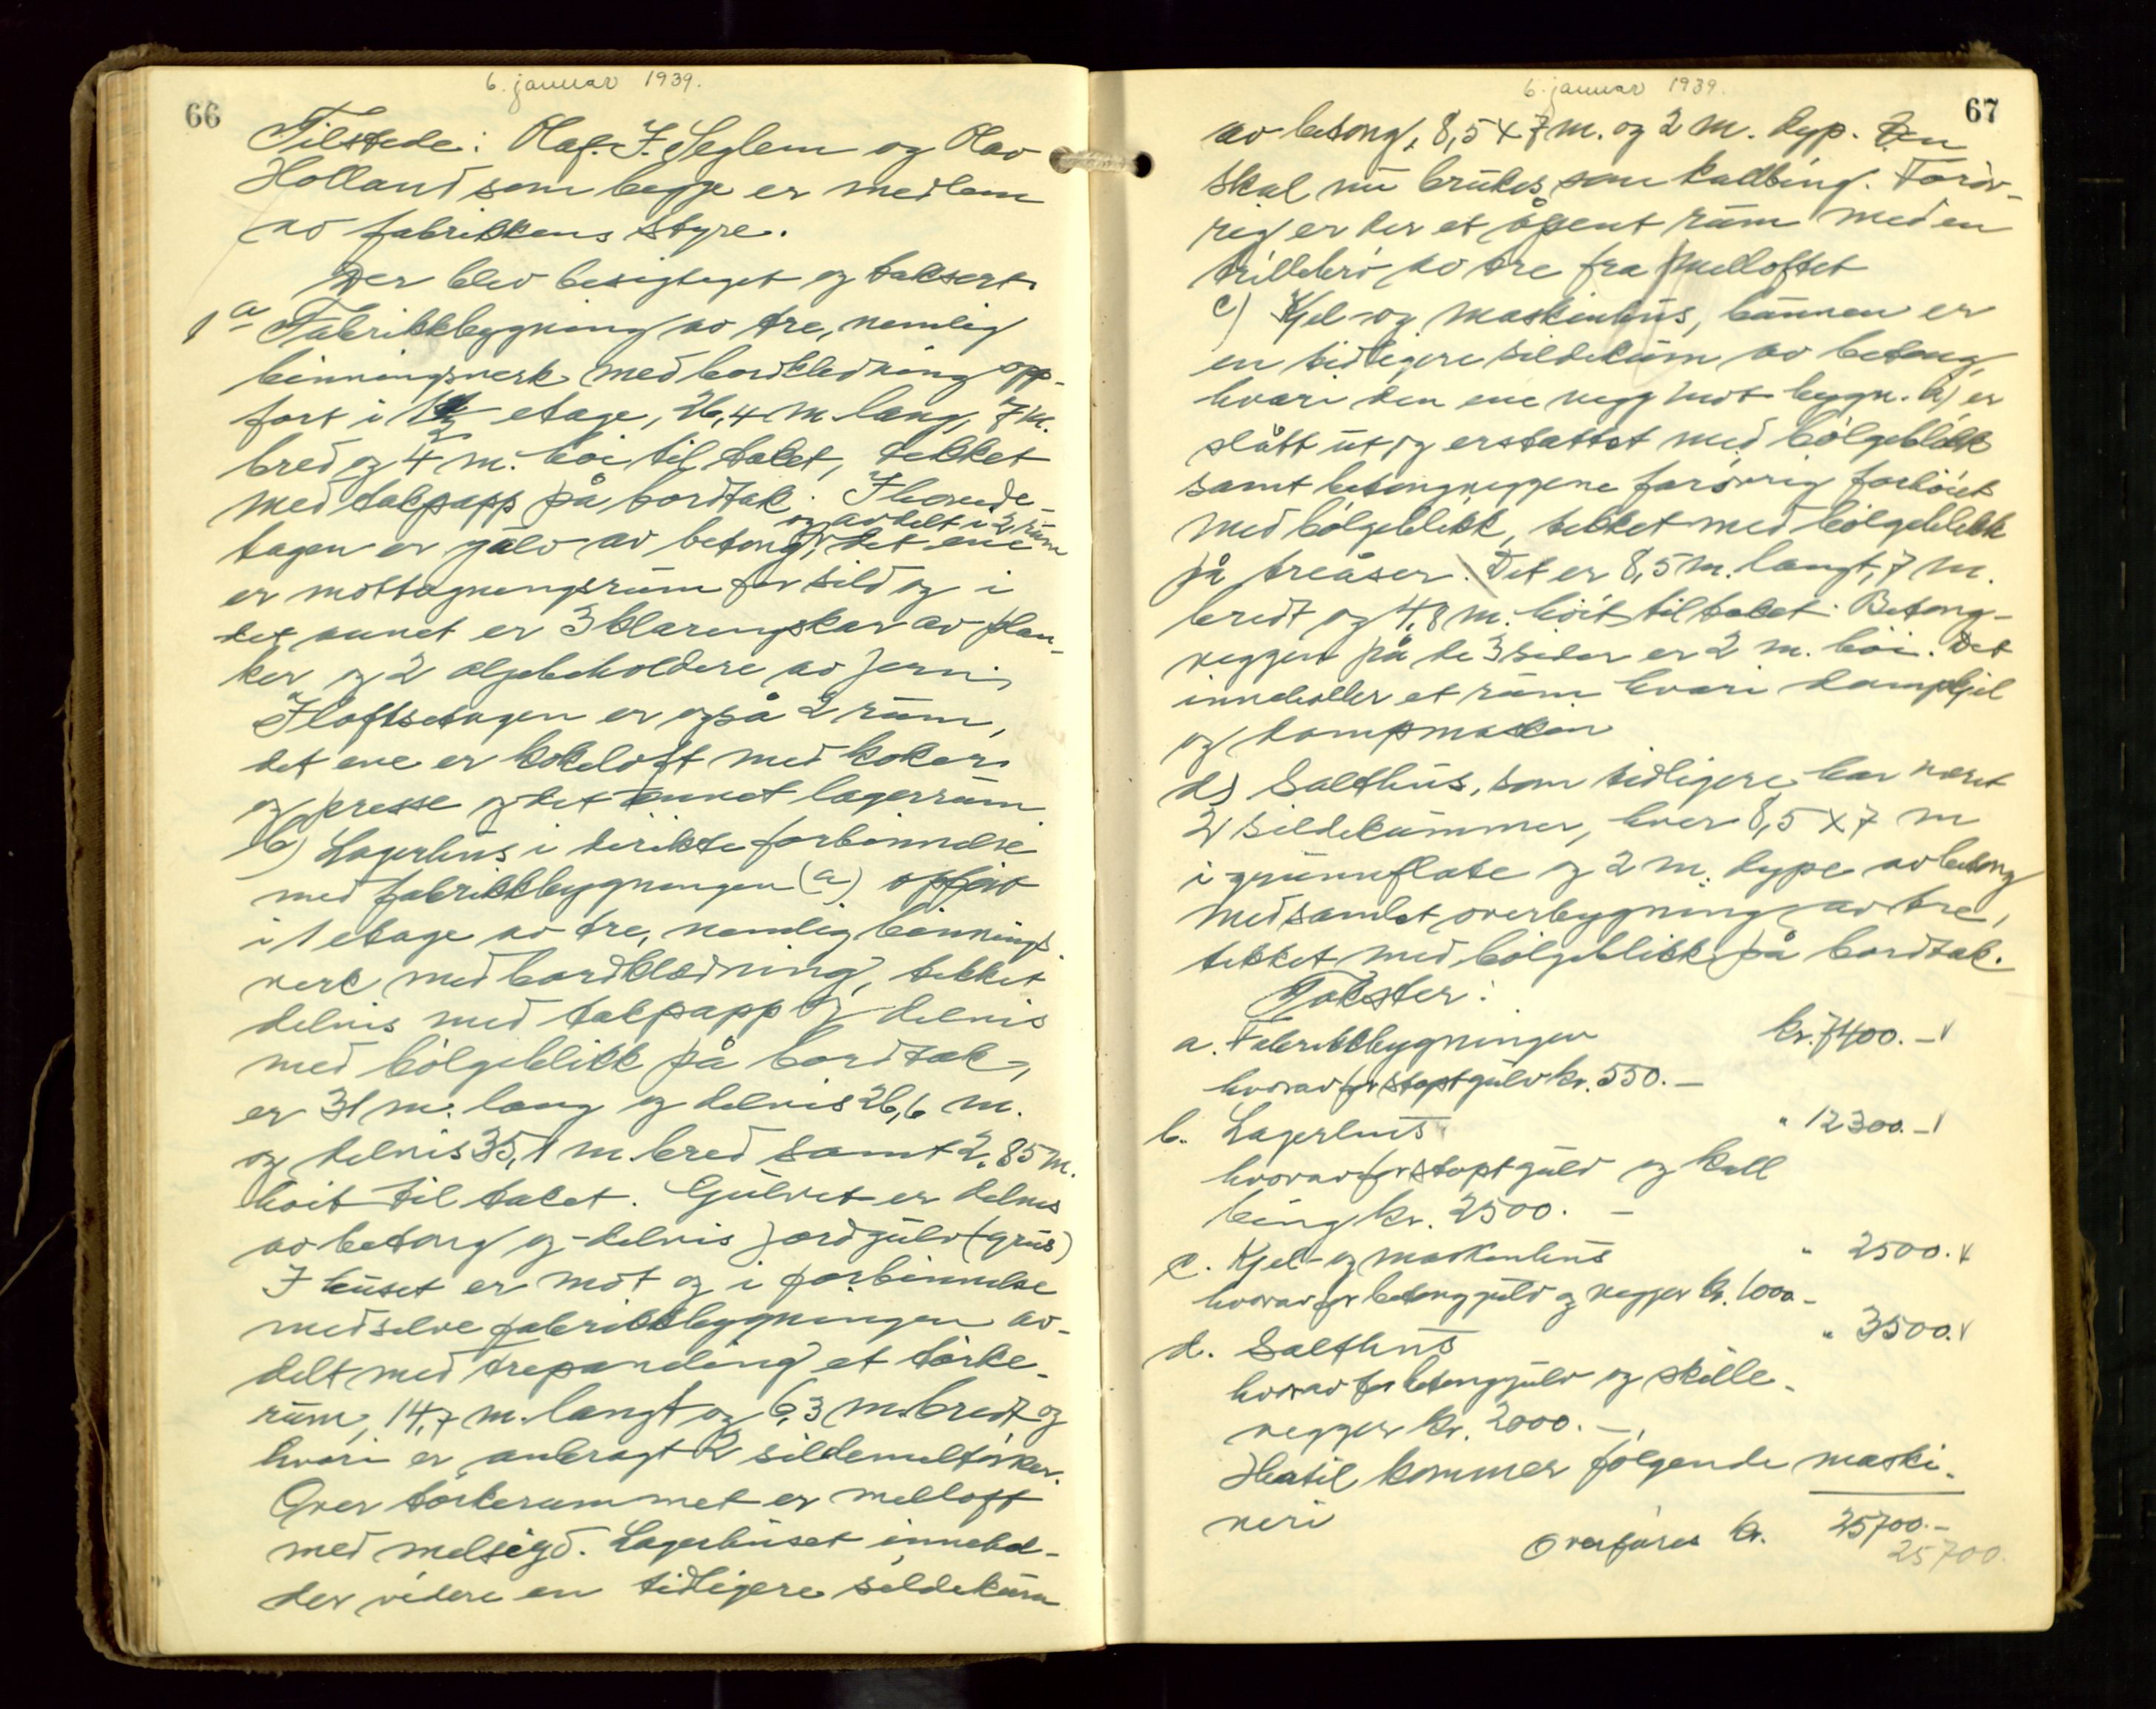 6. januar 1939.
66
Tilstede: Olaf. J. Seglem og Olav
Holland som begge er medlem
av fabrikkens styre.
Der blev besigtiget og taksert.
1 a Fabrikkbygning av tre, nemlig
binningsverk med bordkledning opp-
ført i 1 1/2 etage, 26,4 m. lang, 7 m.
bred og 4 m. höi til taket, tekket
med takpapp på bordtak. I hovede-
tagen er gulv av betong, og avdelt i 2 rum det ene
er mottagningsrum for sild og i
det annet er 3 klaringskar av plan-
ker og 2 oljebeholdere av jern.
I loftsetagen er også 2 rum,
det ene er kokeloft med koker
og presse og det annet lagerrum
b) Lagerhus i direkte forbinnelse
med fabrikkbygningen (a) opført
i 1 etage av tre, nemlig binnings
verk med bordklædning, tekket
delvis med takpapp og delvis
med bölgeblikk på bordtak,
er 31 m. lang og delvis 26,6 m.
og delvis 35,1 m. bred samt 2,85 m.
höit til taket. Gulvet er delvis
av betong og delvis jordgulv (grus)
I huset er mot og i forbinnelse
med selve fabrikkbygningen av-
delt med trepaneling et törke-
rum, 14,7 m. langt og 6,3 m. bredt og
hvori er anbragt 2 sildemeltörker.
Over törkerummet er melloft
med melsigd. Lagerhuset innehol-
der videre en tidligere sildekum
6. januar 1939.
67
av betong, 8,5 x 7 m. og 2 m. dyp. Den
skal nu brukes som kullbing. Forøv-
rig er der et åpent rum med en
trillebrö av tre fra melloftet
c) Kjel- og maskinhus, bunnen er
en tidligere sildekum av betong,
hvori den ene vegg mot bygn. b) er
slått ut og erstattet med bölgeblikk
samt betongveggene forøvrig forhöiet
med bölgeblikk, tekket med bölgeblikk
på treåser. Det er 8,5 m. langt, 7 m.
bredt og 4,8 m. höit til taket. Betong-
veggen på de 3 sider er 2 m. höi. Det
inneholder et rum hvori dampkjel
og dampmaskin
d) Salthus, som tidligere har været
2 sildekummer, hver 8,5 x 7 m
i grunnflate og 2 m. dype av betong
med samlet overbygning av tre,
tekket med bölgeblikk på bordtak.
Takster:
a. Fabrikkbygningen kr. 7400.-
hvorav for støpt gulv kr. 550.-
b. Lagerhus " 12300.-
hvorav for støpt gulv og kull
bing kr. 2500.-
c. Kjel- og maskinhus " 2500.
hvorav for betonggulv og vegger kr. 1000.-
d. Salthus " 3500.
hvorav for betonggulv og skille-
vegger kr. 2000.-
Hertil kommer følgende maski-
neri
Overføres kr. 25700.-
25700.